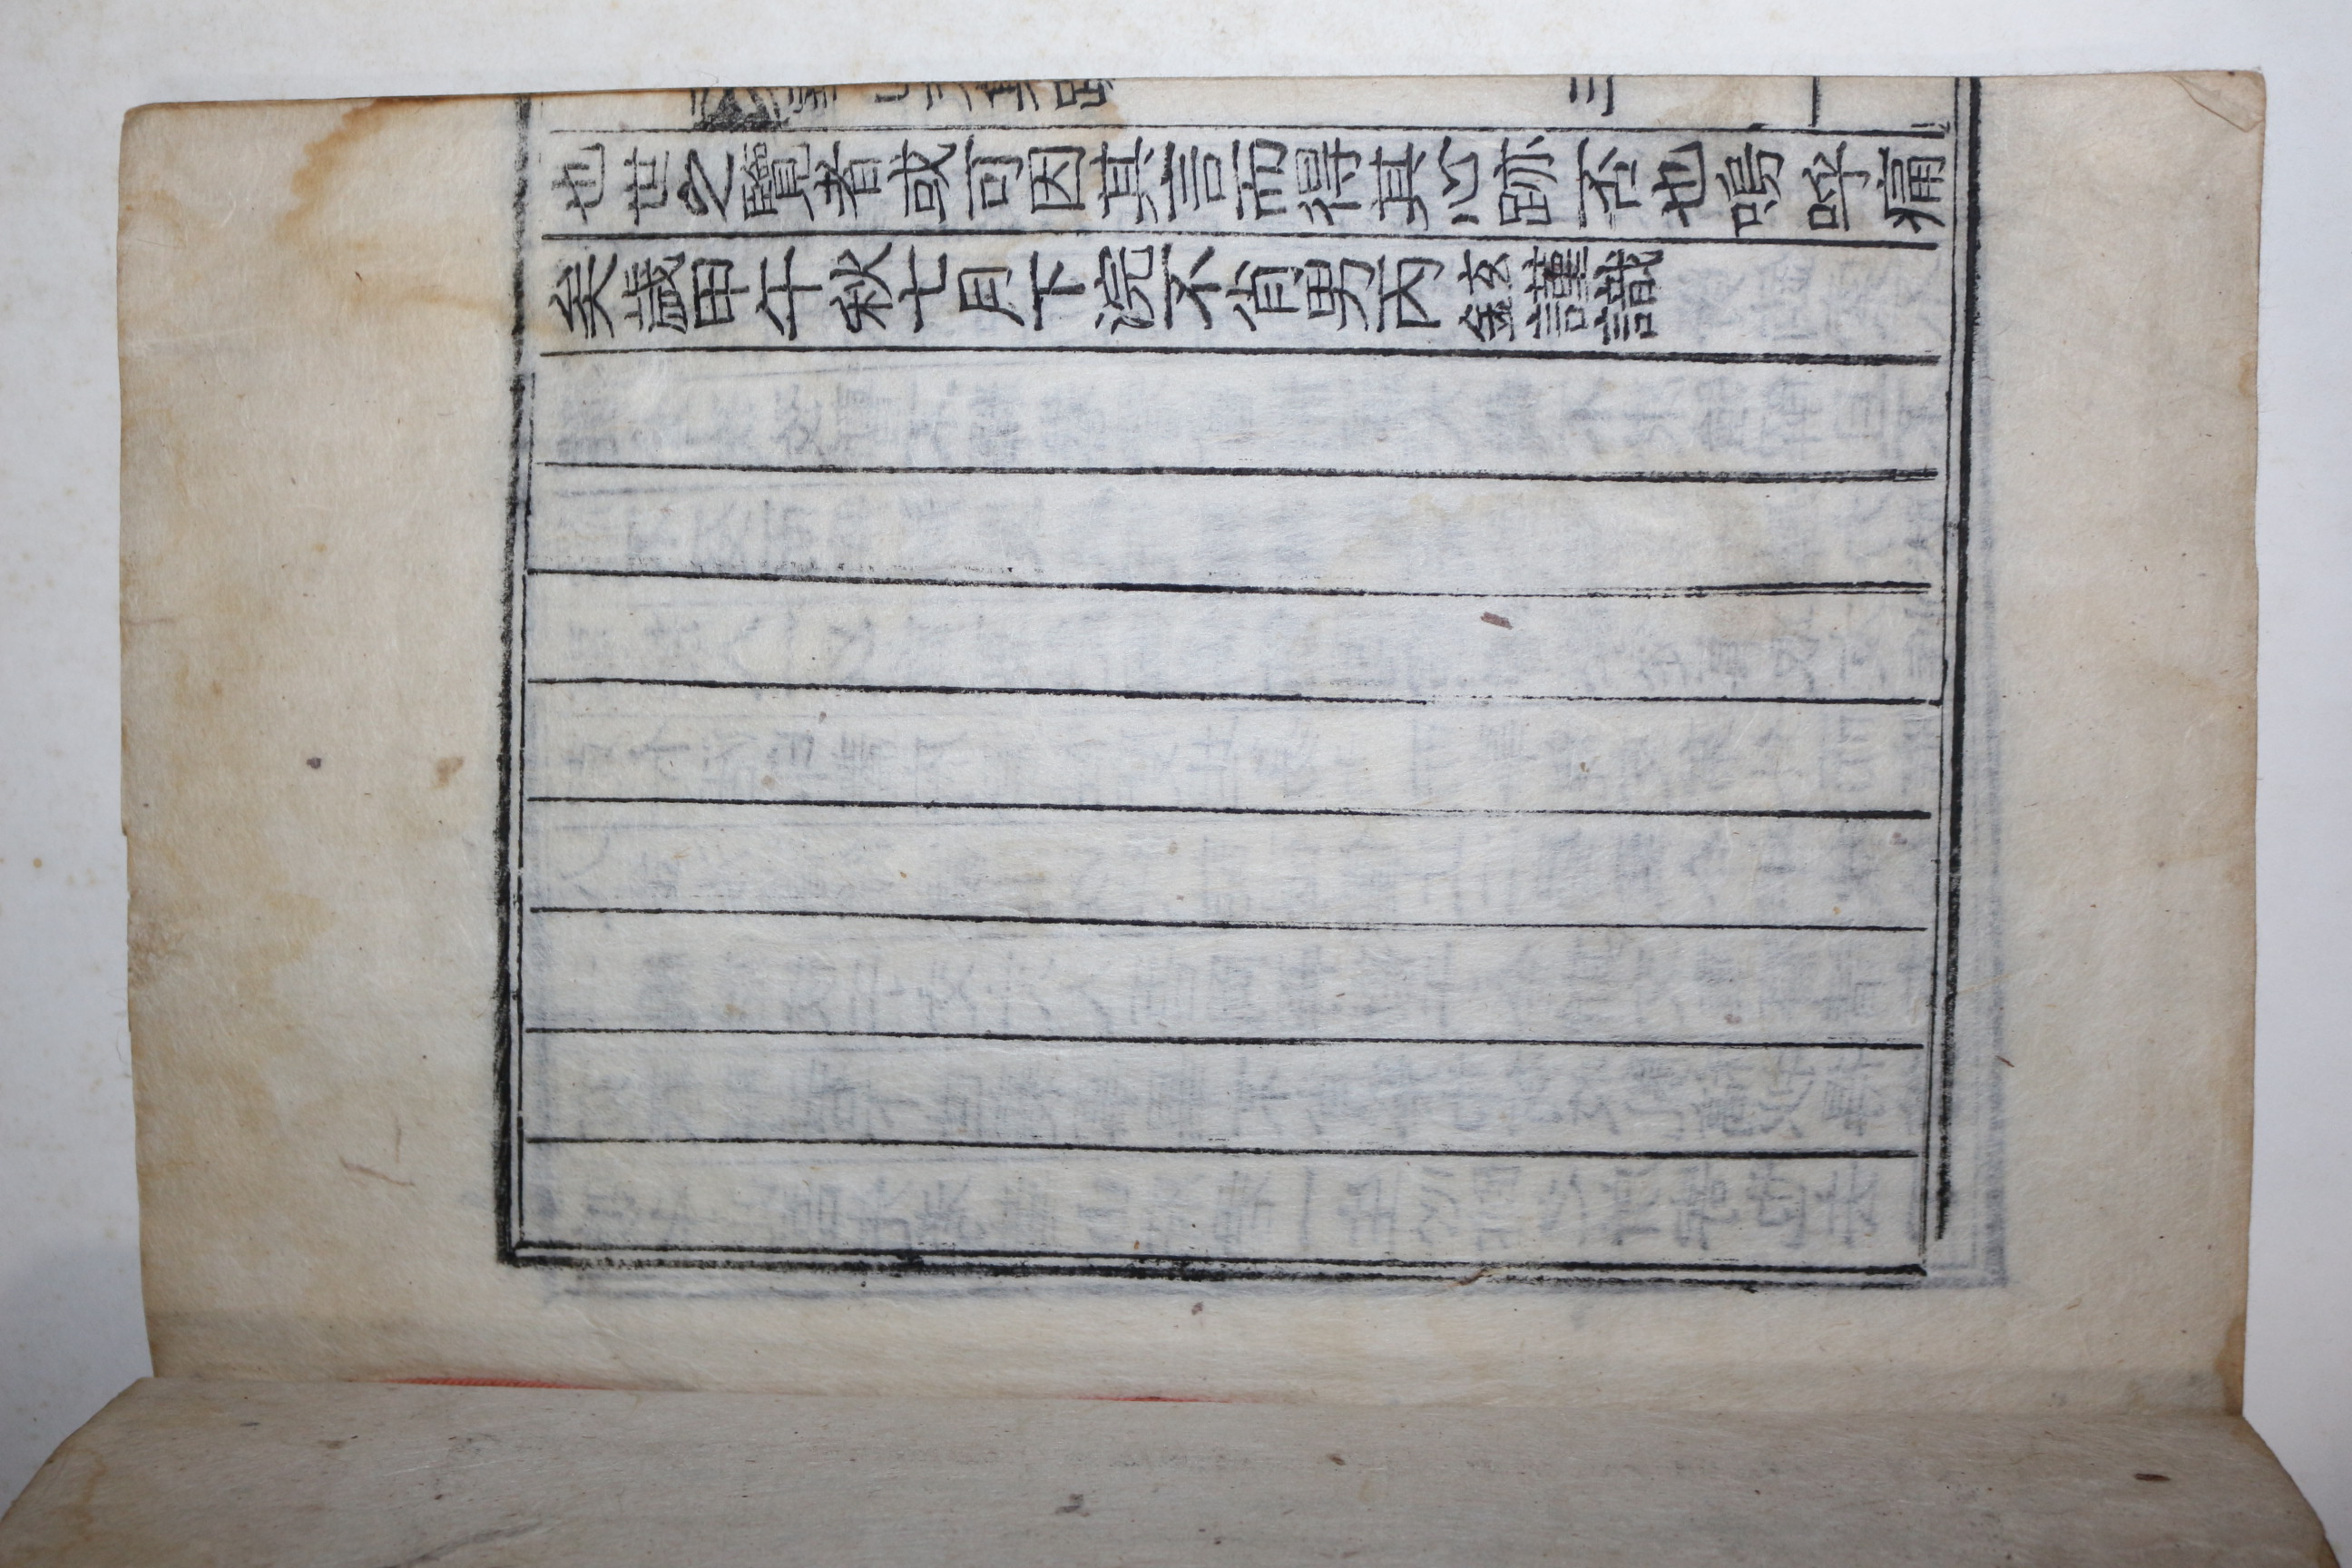 三
也世之覽者或可因其言而得其心跡否也嗚呼痛
矣歲甲午秋七月下浣不肖男丙鉉謹識